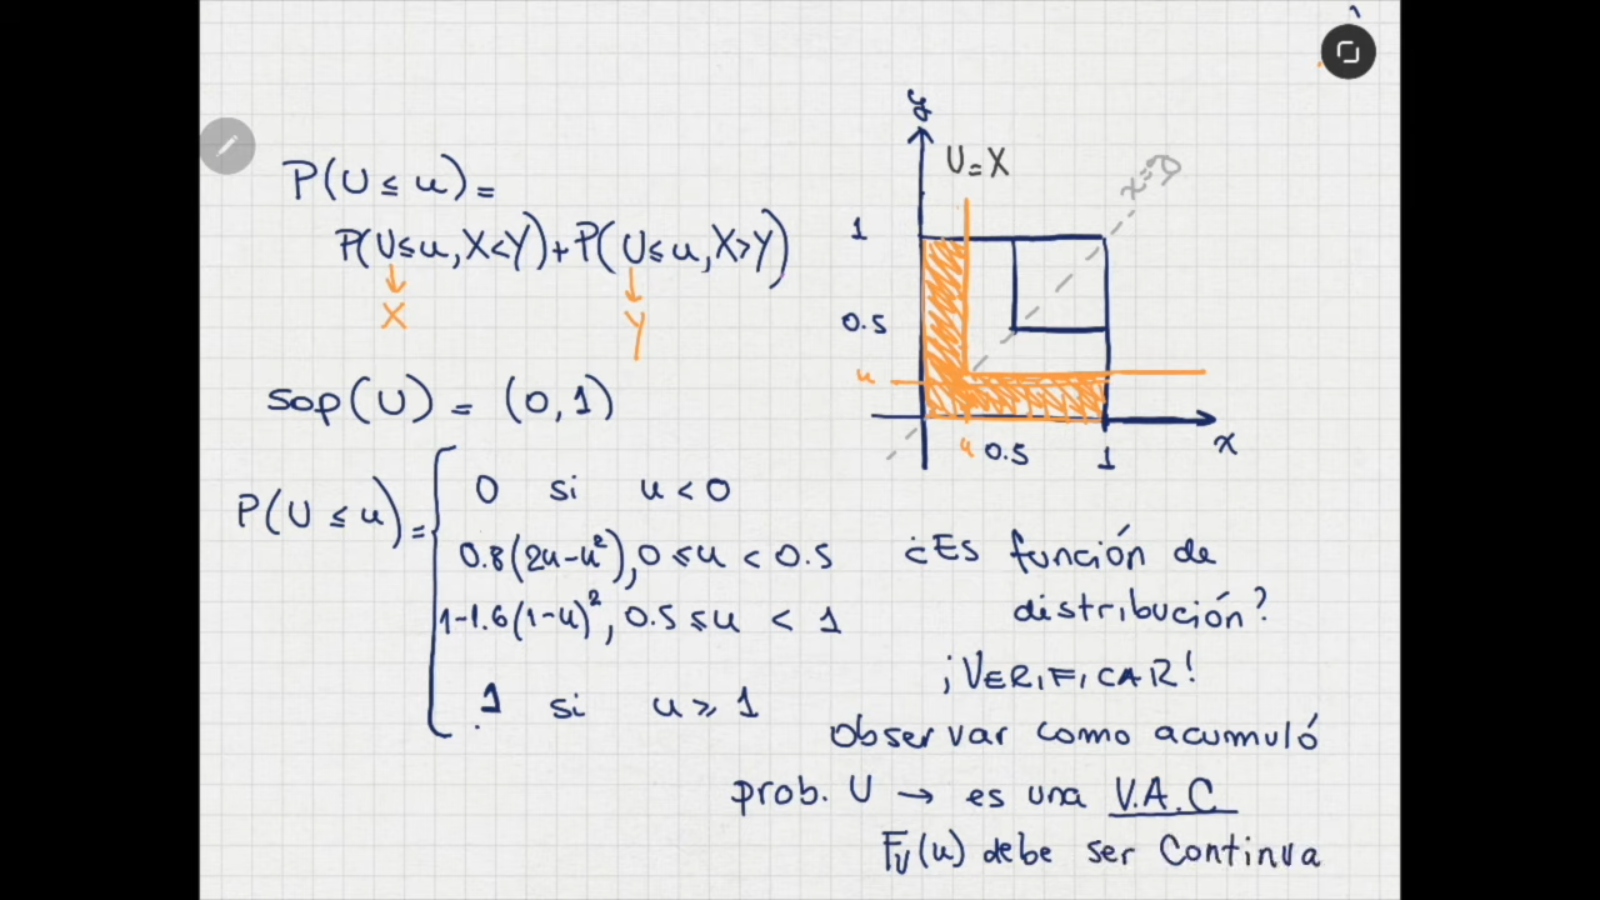 P(U ≤ u) =
P(U ≤ u, X < Y) + P(U ≤ u, X > Y)
X
Y
sop(U) = (0, 1)
P(U ≤ u) =
0 si u < 0
0.8(2u-u²), 0 ≤ u < 0.5
1-1.6(1-u)², 0.5 ≤ u < 1
1 si u ≥ 1
y
U = X
x=y
1
0.5
u
u 0.5 1
x
¿Es función de
distribución?
¡VERIFICAR!
observar como acumuló
prob. U → es una V.A.C
F_U(u) debe ser continua